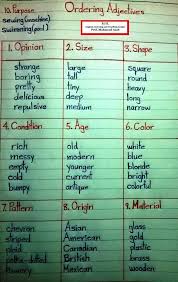 10. Purpose
sewing (machine)
swimming (pool)
Ordering Adjectives
1. Opinion
strange
boring
pretty
delicious
repulsive
2. Size
large
tall
tiny
deep
medium
3. Shape
square
round
heavy
long
narrow
4. Condition
rich
messy
empty
cold
bumpy
5. Age
old
modern
younger
current
antique
6. Color
white
blue
blonde
bright
colorful
7. Pattern
chevron
striped
plaid
polka-dotted
flowery
8. Origin
Asian
American
Canadian
British
Mexican
9. Material
glass
gold
plastic
brass
wooden